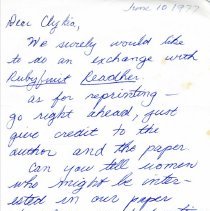 June 10 1977
Dear Clytia,
We surely would like
to do an exchange with
Rubyfruit Readher
as for reprinting —
go right ahead, just
give credit to the
author and the paper
Can you tell women
who might be inter-
ested in our paper